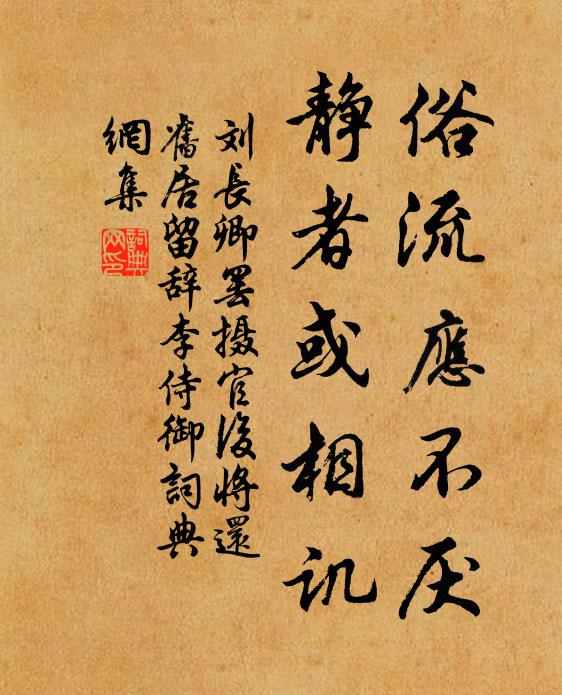 俗流應不厌
静者或相讥
刘長卿罢摄官後將還
舊居留辞李侍御詞典
網集
詞典網印